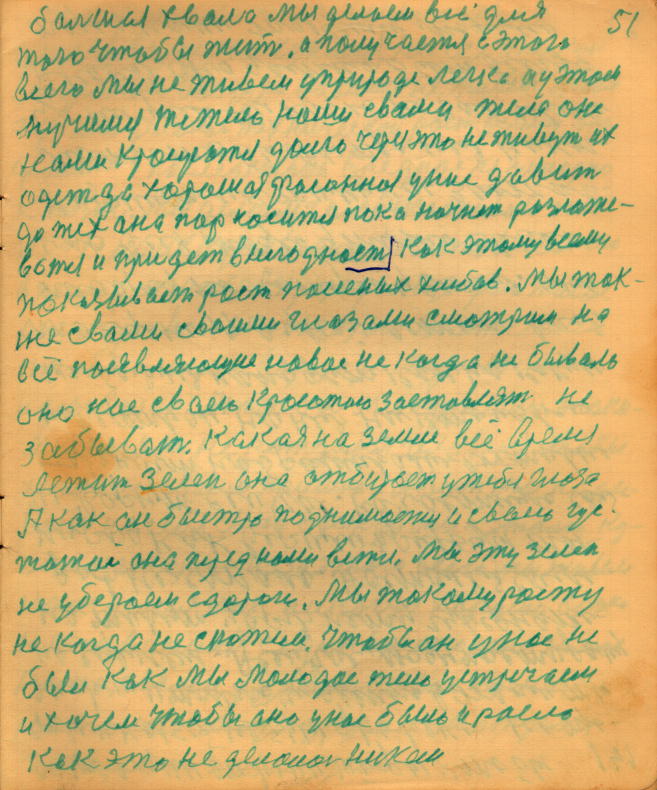 51
болшая хвала мы делаем всё для
того чтобы жить, а получается с этого
всего мы не живем у природе легко а у этом
мучимся тяжело наши с вами тела они
нами кроются долго через это не живут их
одежда хорошая фасонная у них давит
до тех она пор носится пока начнет разлаже-
ватся и придет в негодность как этому всему
показывает рост посеяных хлибав. Мы так-
же с вами своими глазами смотрим на
всё появляющие новое не когда не бывало
оно нас своею красотою заставляет не
забывать. Какая на земле всё время
лежит зелен она отбирает у тебя глаза
А как он быстро поднимается и своею гус-
тотой она перед нами вети. Мы эту зелен
не уберем с дороги. Мы такому росту
не когда не скажем. Чтобы он у нас не
был как мы молодое тело устричаем
и хочем чтобы оно у нас было и расло
как это не делалос никем